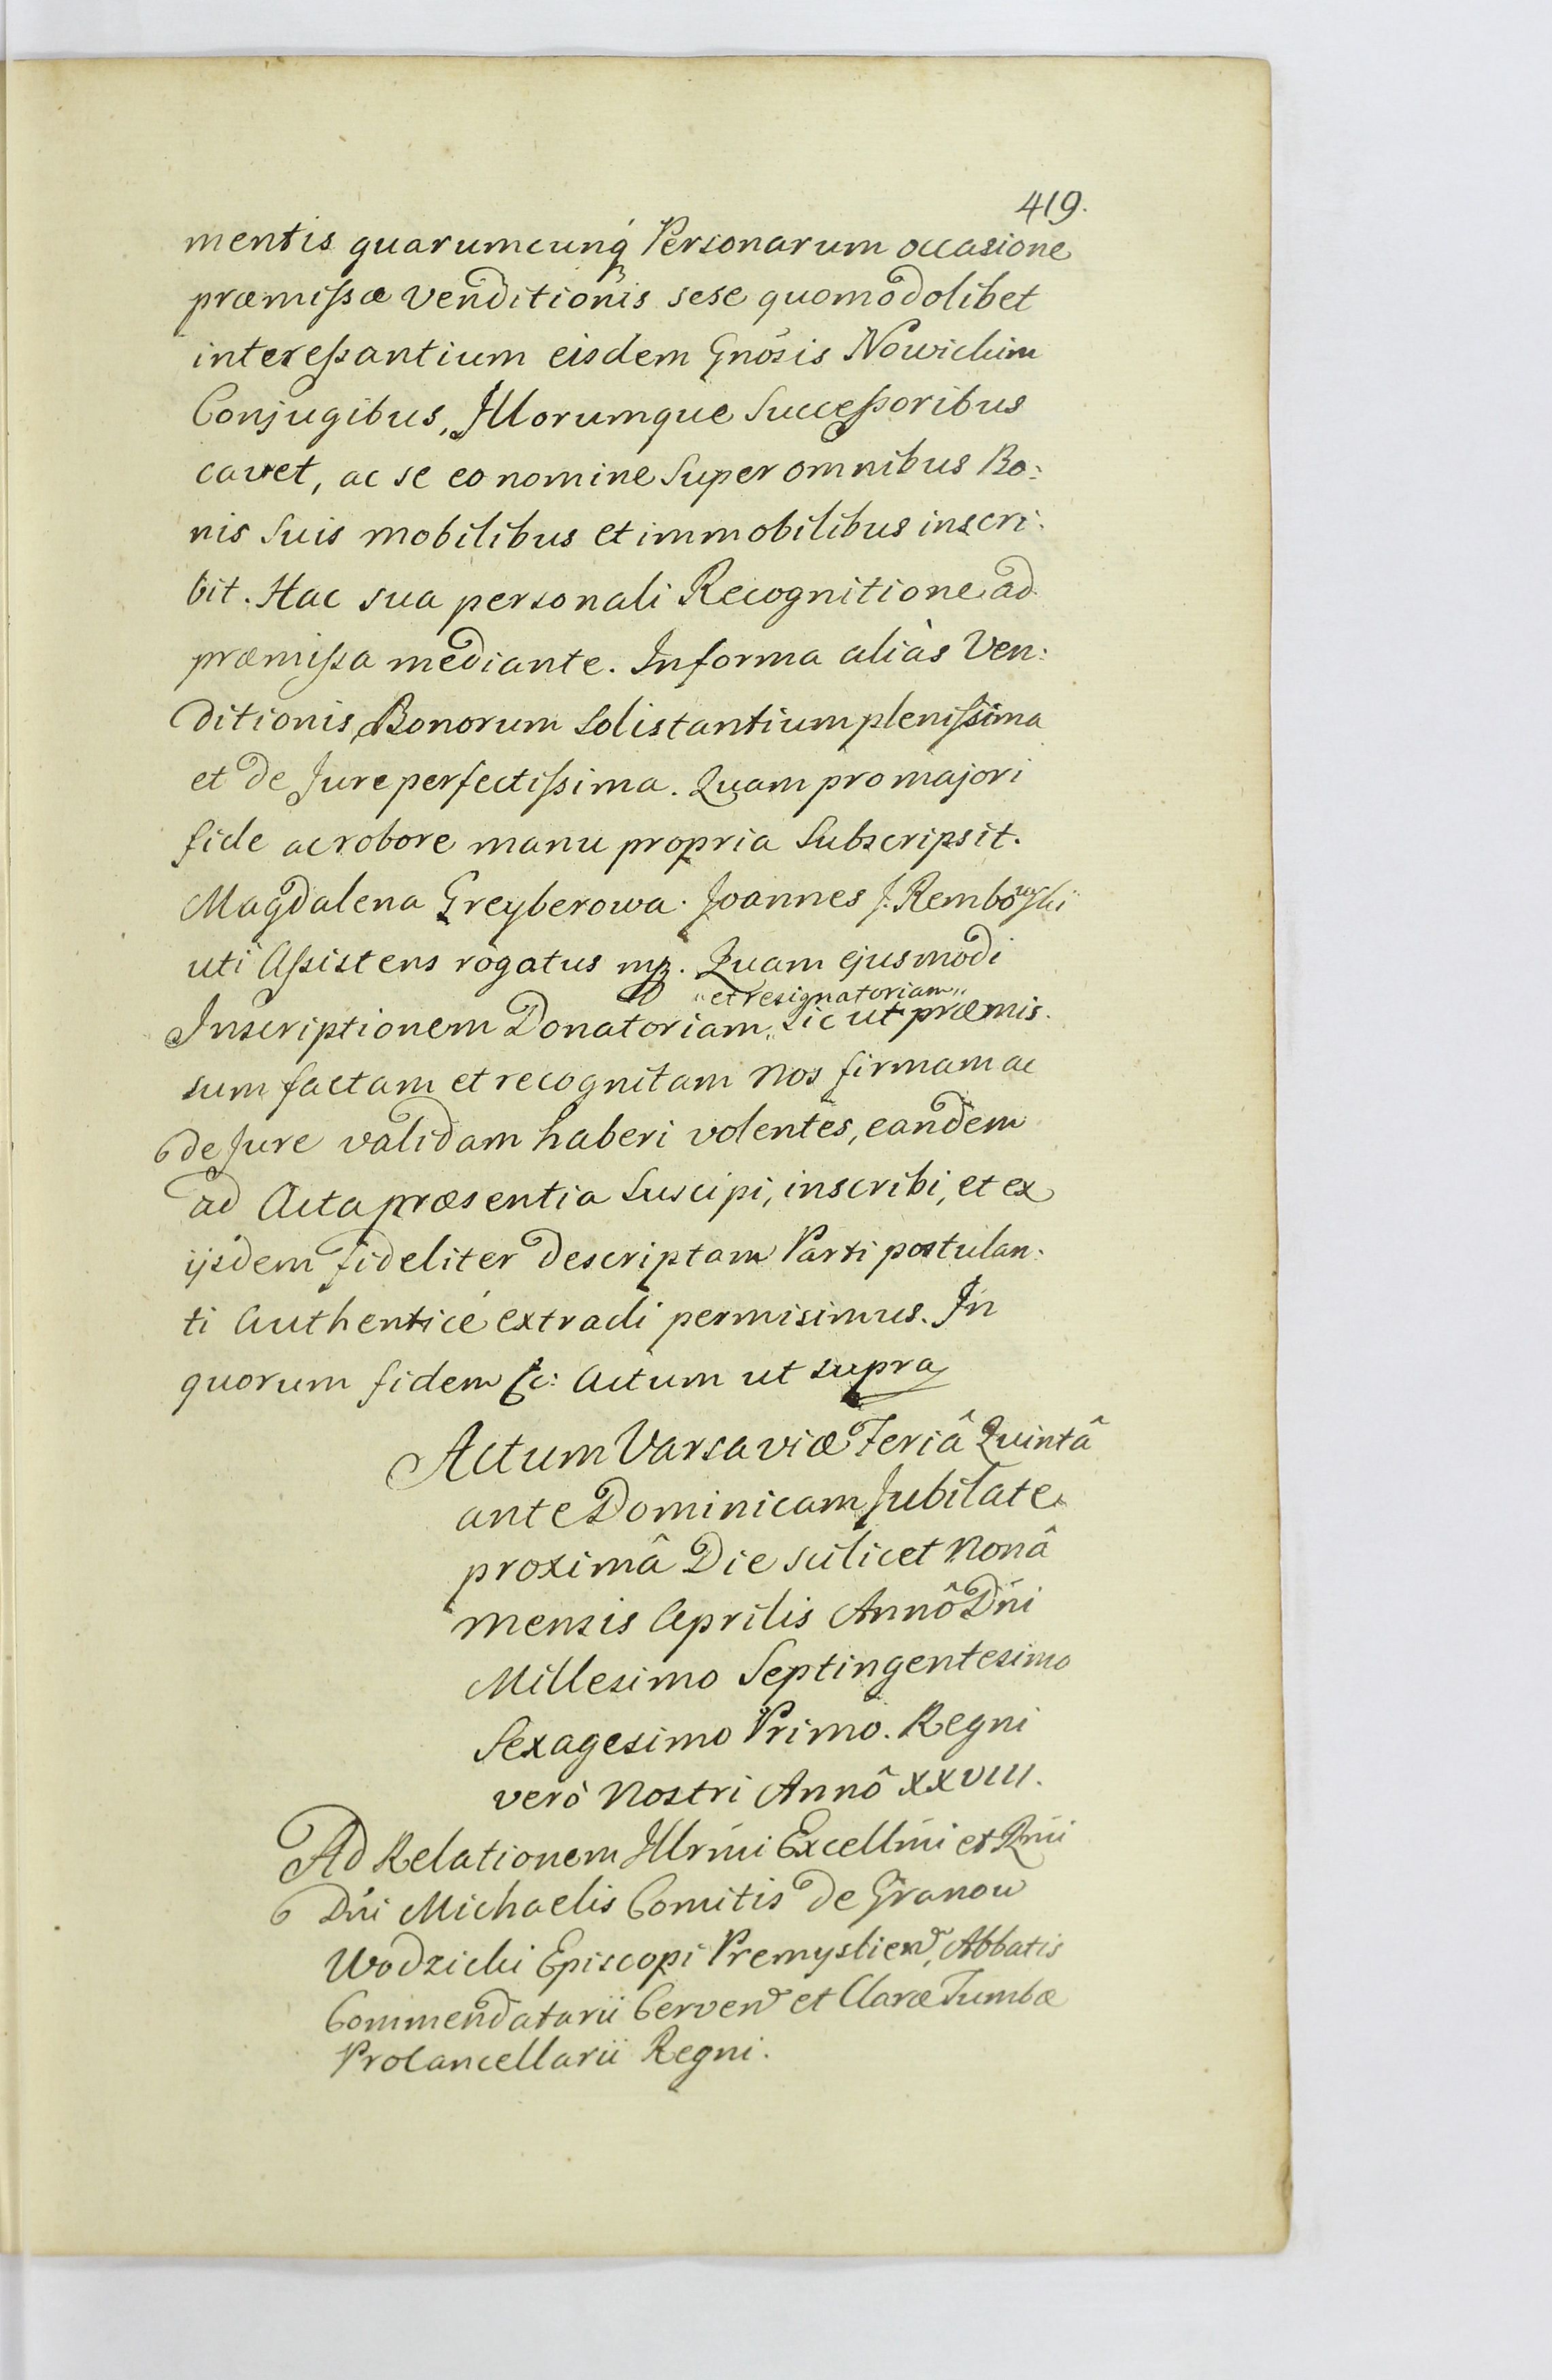 419.
mentis quarumcunq́ Personarum occasione
præmissæ Venditionis sese quomodolibet
interessantium eisdem Gnósis Nowickim
Conjugibus, Illorumque Successoribus
cavet, ac se eo nomine Super omnibus Bo:
nis Suis mobilibus et immobilibus inscri:
bit. Hac sua personali Recognitione ad
præmissa mediante. In forma aliàs Ven:
ditionis Bonorum Solistantium plenissima
et de Jure perfectissima. Quam pro majori
fide ac robore manu propria Subscripsit.
Magdalena Greyberowa. Joannes J. Rembowski
uti Assistens rogatus mp. Quam ejusmodi
„et resignatoriam„
Inscriptionem Donatoriam„ Sic ut præmis.
sum factam et recognitam Nos firmam ac
de Jure validam haberi volentes, eandem
ad Acta præsentia Suscipi, inscribi, et ex
ijsdem fideliter descriptam Parti postulan:
ti Authenticé extradi permisimus. In
quorum fidem &c: Actum ut supra
Actum Varsaviæ Feriâ Quintâ
ante Dominicam Jubilate
proximâ Die scilicet Nonâ
Mensis Aprilis Annô Dńi
Millesimo Septingentesimo
Sexagesimo Primo. Regni
verò Nostri Annô XXVIII.
Ad Relationem Illrmi Excellmi et Rmi
Dńi Michaelis Comitis de Granow
Wodzicki Episcopi Premyslien, Abbatis
Commendatarii Cerven et Claræ Tumbæ
Procancellarii Regni.